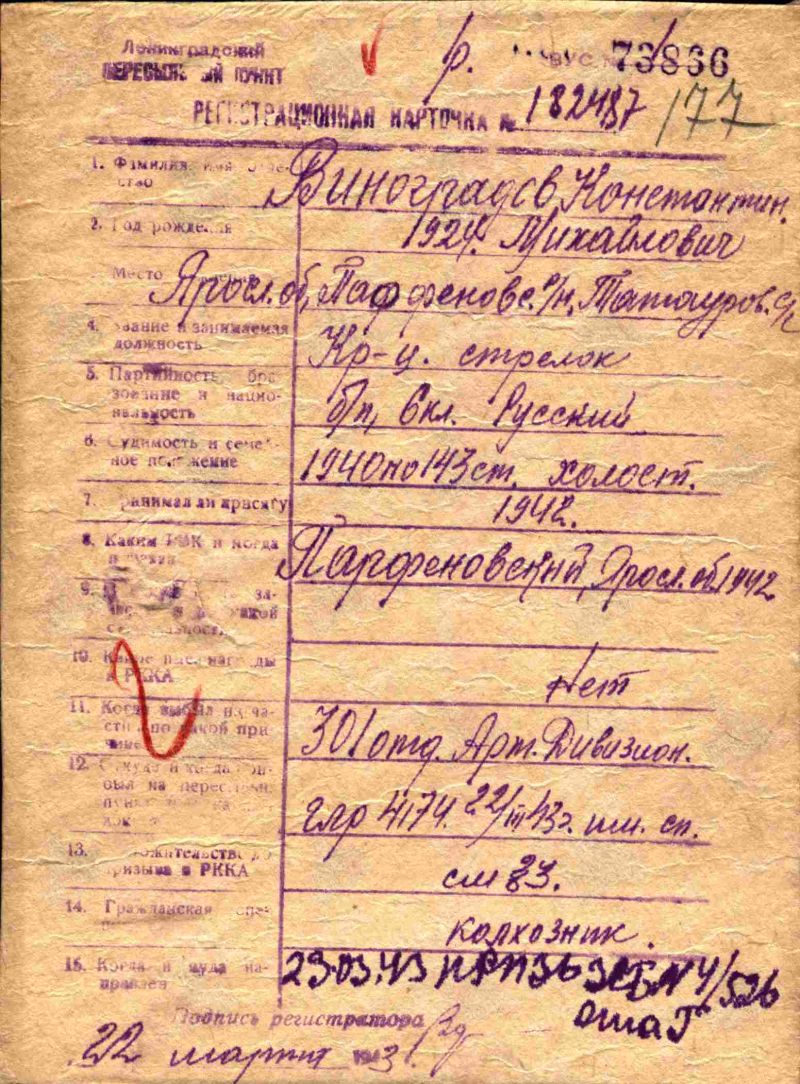 Ленинградский
ПЕРЕСЫЛЬНЫЙ ПУНКТ
р.
ВУС № 73866
РЕГИСТРАЦИОННАЯ КАРТОЧКА № 182487
177
1. Фамилия, имя
ство
Виноградов Константин.
2. Год рождения
1924. Михайлович
Место
Яросл. об, Парфеновс. р/н, Татауров. с/с
4. Звание и занимаемая
должность
Кр-ц. стрелок
5. Партийность, обра-
зование и нацио-
нальность
б/п, 6 кл. Русский
6. Судимость и семей-
ное положение
1940 по 143 ст. холост.
7. Принимал ли присягу
1942.
8. Каким РВК и когда
Парфеновский, Яросл. об. 1942
9.
10. Какие имел награды
в РККА
Нет
11. Когда выбыл из ча-
сти и по какой при-
301 отд. Арт. Дивизион.
12. Откуда и когда при-
был на пересыльн.
глр 4174. 22/III 43г. им. сп.
13. жительства до
призыва в РККА
см
14. Гражданская спе-
колхозник.
15. Когда и куда на-
правлен
29.03.43
Подпись регистратора
22 марта 1943